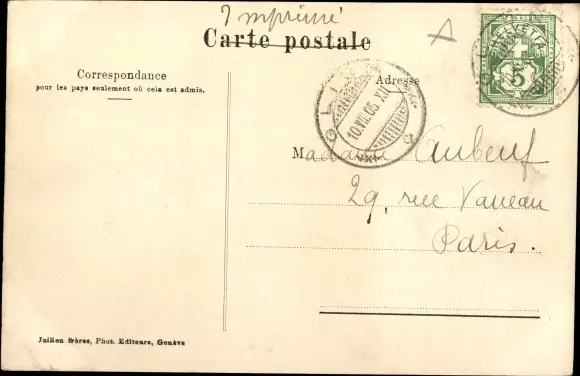 Imprimé
Carte postale
A
HELVETIA
5
Correspondance
pour les pays seulement où cela est admis.
Adresse
10.VII.05.XII
Madame Aubeuf
29, rue Vaneau
Paris.
Jullien frères, Phot. Editeurs, Genève